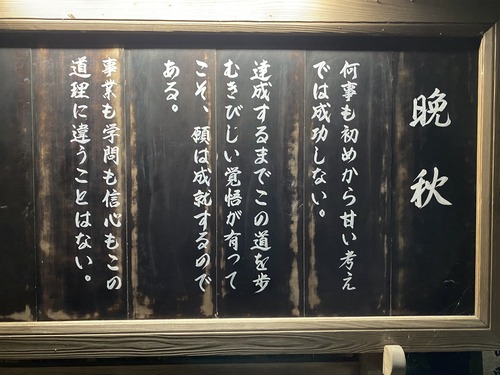 晩秋
何事も初めから甘い考え
では成功しない。
達成するまでこの道を歩
むきびじい覚悟が有って
こそ、願は成就するので
ある。
事業も学問も信心もこの
道理に違うことはない。